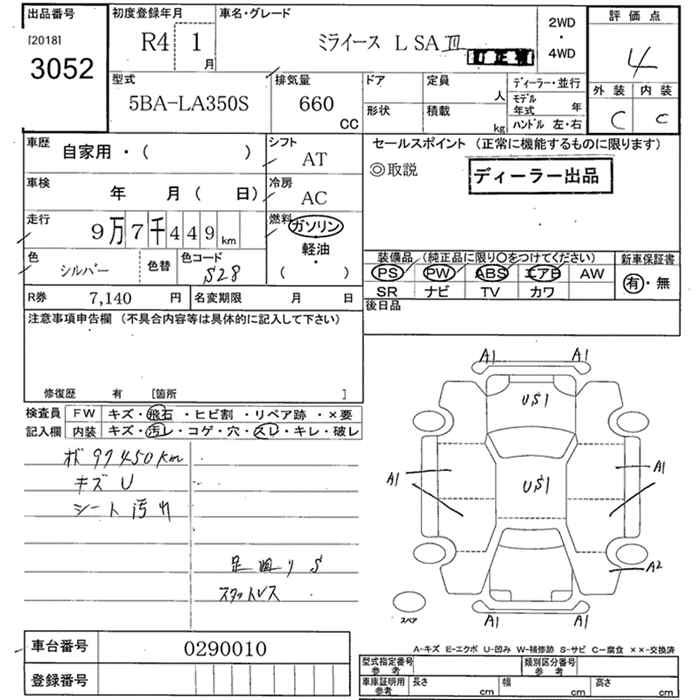 出品番号 初度登録年月 車名・グレード 2WD ・ 4WD 評価点
[2018] R4 1 月 ミライース L SAⅢ 訂正橋 4
3052
型式 排気量 ドア 定員 人 ディーラー・並行 外装 内装
5BA-LA350S 660 CC 形状 積載 kg モデル年式 年 C C
ハンドル 左・右
車歴 自家用・( ) シフト AT セールスポイント (正常に機能するものに限ります)
◎取説 ディーラー出品
車検 年 月( 日) 冷房 AC
走行 9万7千449km 燃料 ガソリン・軽油・( )
色 シルバー 色替 色コード S28
装備品 (純正品に限り○をつけてください) 新車保証書
PS PW ABS エアB AW 有・無
SR ナビ TV カワ
R券 7,140 円 名変期限 月 日 後日品
注意事項申告欄 (不具合内容等は具体的に記入して下さい)
修復歴 有 [箇所 ]
検査員記入欄 FW キズ・飛石・ヒビ割・リペア跡・×要
内装 キズ・汚レ・コゲ・穴・スレ・キレ・破レ
ボ 97450km
キズ U
シート 汚れ
足廻り S
スタットレス
A1 A1
US1
A1 US1 A1
A2
A1 A1
スペア
A-キズ E-エクボ U-凹み W-補修跡 S-サビ C-腐食 ××-交換済
車台番号 0290010
登録番号
型式指定番号 参考 類別区分番号 参考
車庫証明用 参考 長さ cm 幅 cm 高さ cm